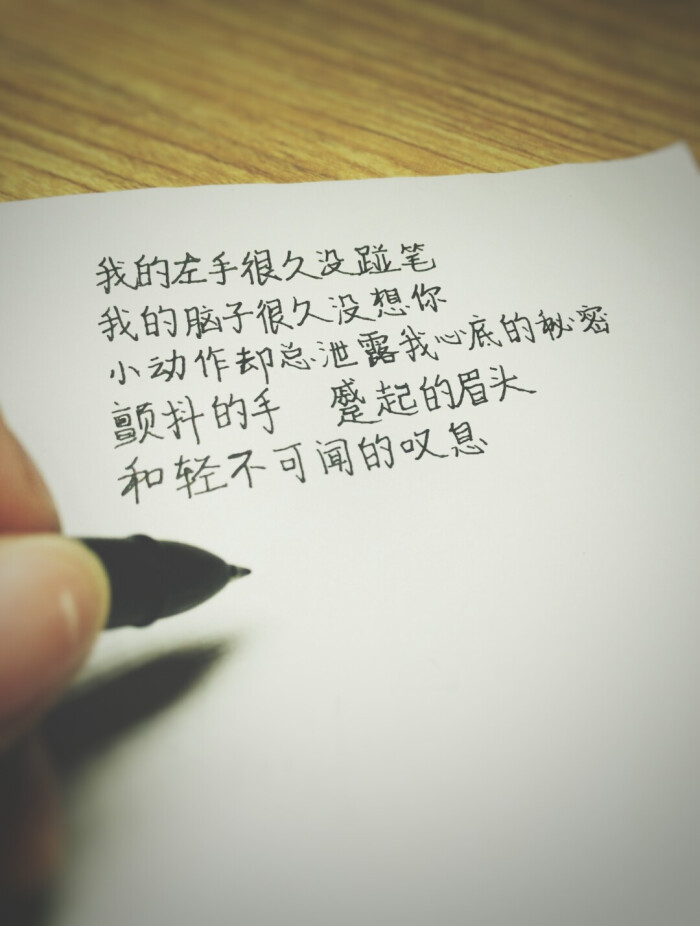 我的左手很久没踫笔
我的脑子很久没想你
小动作却总泄露我心底的秘密
颤抖的手 蹙起的眉头
和轻不可闻的叹息